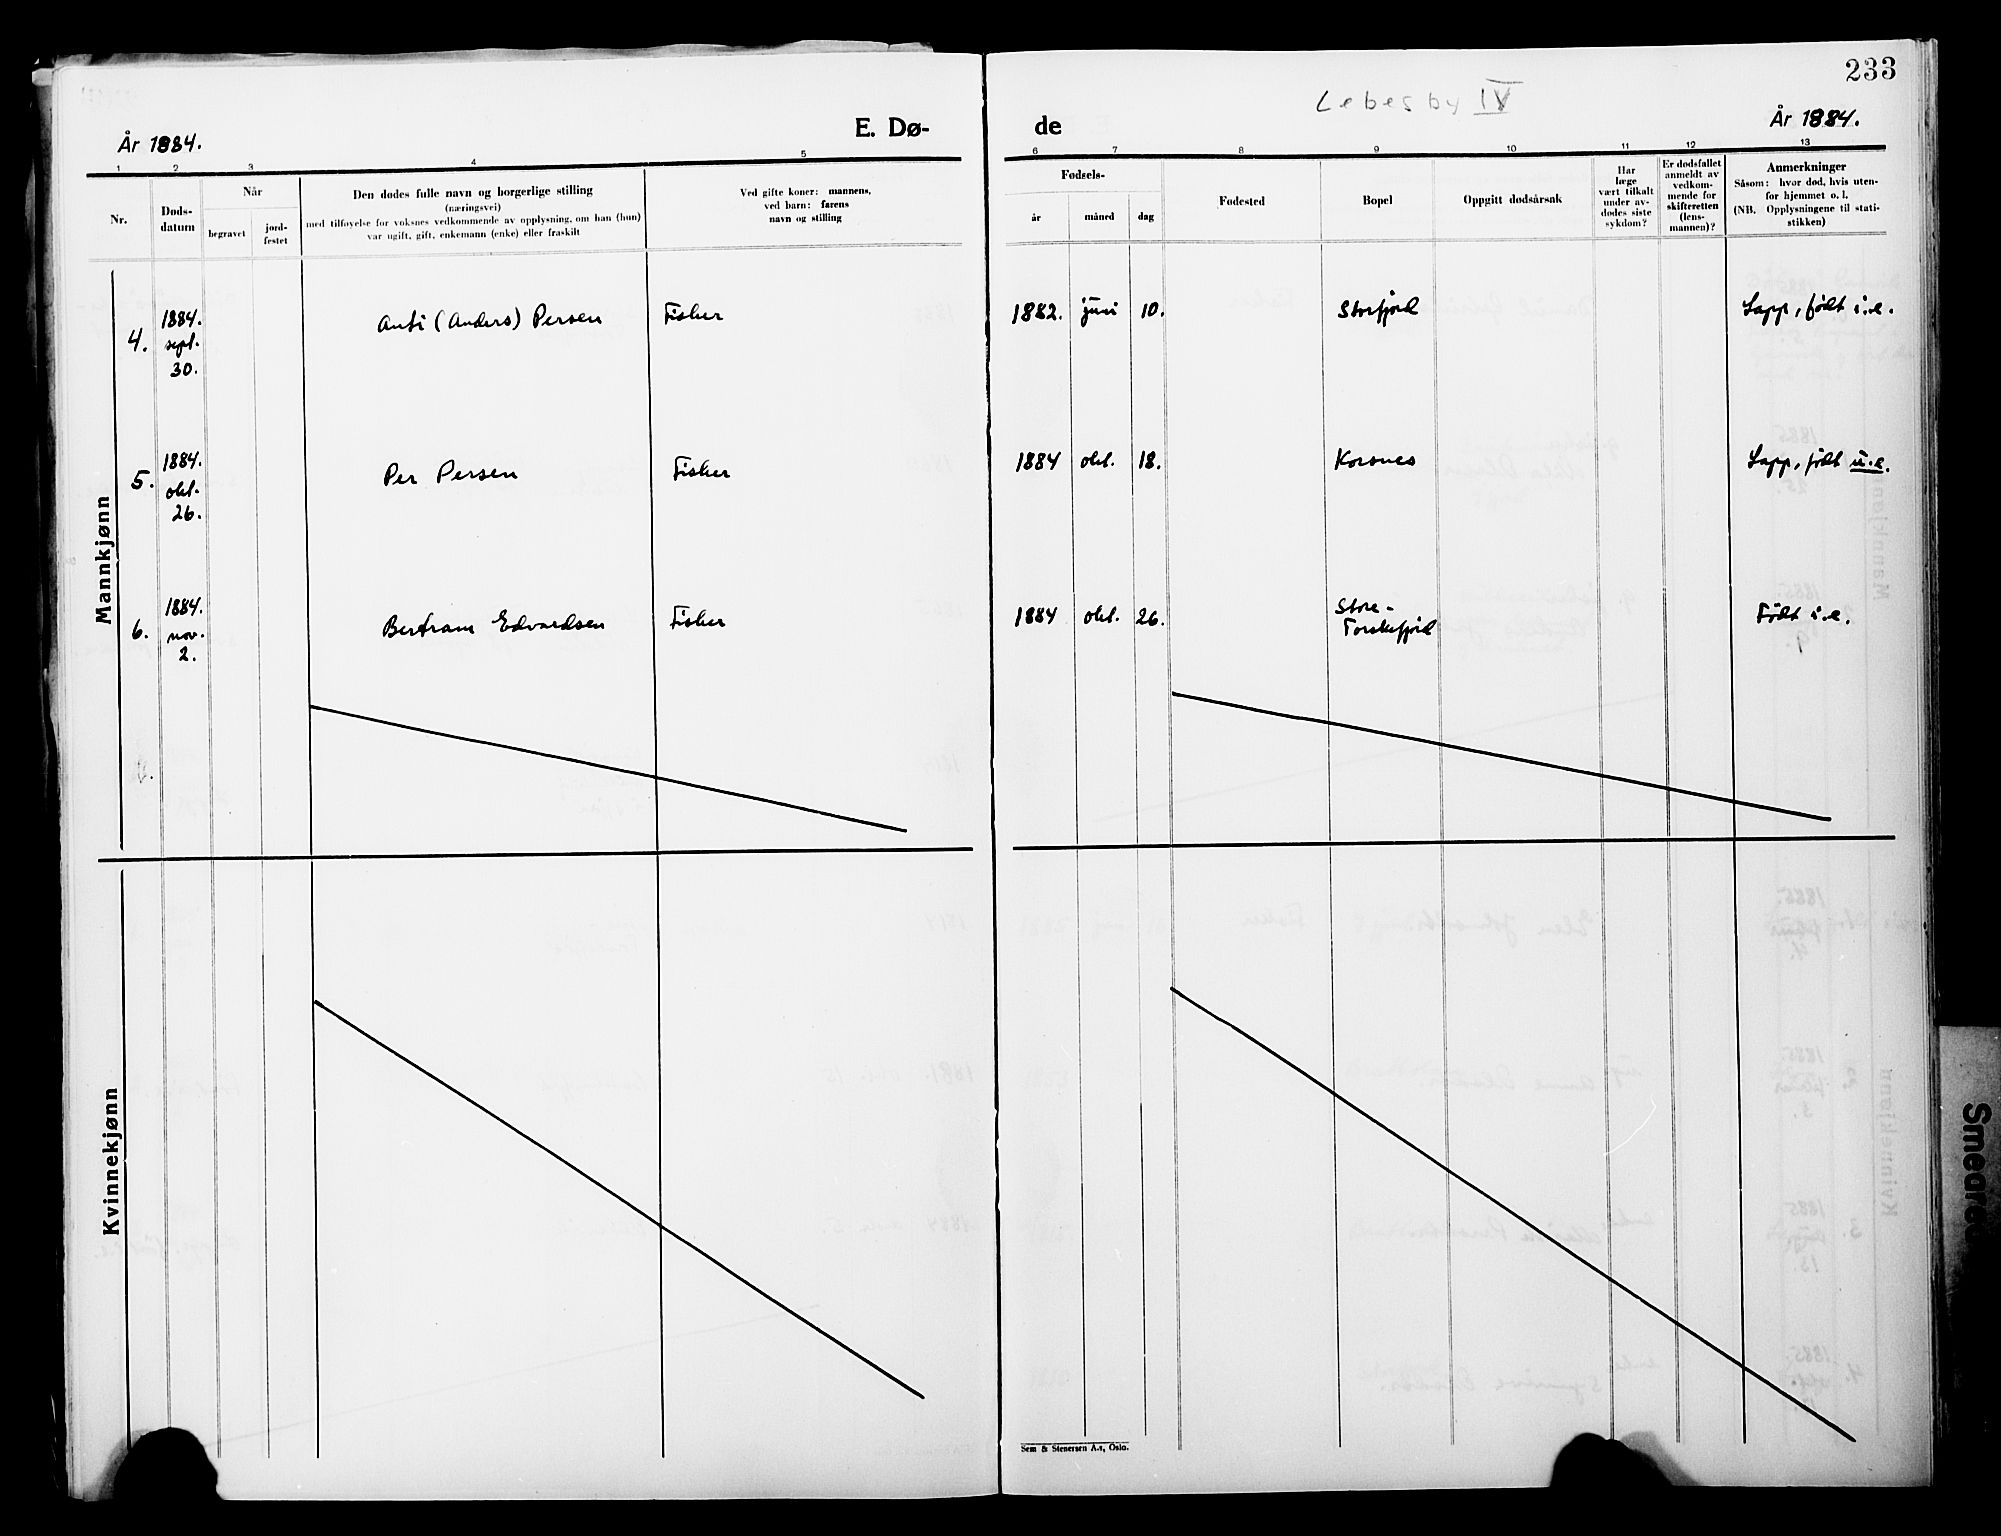 233
Lebesby IV
År 1884.
E. Dø-
de
År 1884.
1 2 3 4 5
6 7 8 9 10 11 12 13
Nr.
Døds-
datum
Når
begravet
jord-
festet
Den dødes fulle navn og borgerlige stilling
(næringsvei)
med tilføyelse for voksnes vedkommende av opplysning, om han (hun)
var ugift, gift, enkemann (enke) eller fraskilt
Ved gifte koner: mannens,
ved barn: farens
navn og stilling
Fødsels-
år
måned
dag
Fødested
Bopel
Oppgitt dødsårsak
Har
læge
vært tilkalt
under av-
dødes siste
sykdom?
Er dødsfallet
anmeldt av
vedkom-
mende for
skifteretten
(lens-
mannen)?
Anmerkninger
Såsom: hvor død, hvis uten-
for hjemmet o. l.
(NB. Opplysningene til stati-
stikken)
Mannkjønn
4.
1884.
sept.
30.
Anti (Anders) Persen
Fisker
1882. juni 10.
Storfjord
Lapp, født i.e.
5.
1884.
okt.
26.
Per Persen
Fisker
1884 okt. 18.
Korsnes
Lapp, født u.e.
6.
1884.
nov.
2.
Bertram Edvardsen
Fisker
1884 okt. 26.
Store-
Torskefjord
Født i.e.
Kvinnekjønn
Sem & Stenersen A.s, Oslo.
Smearet